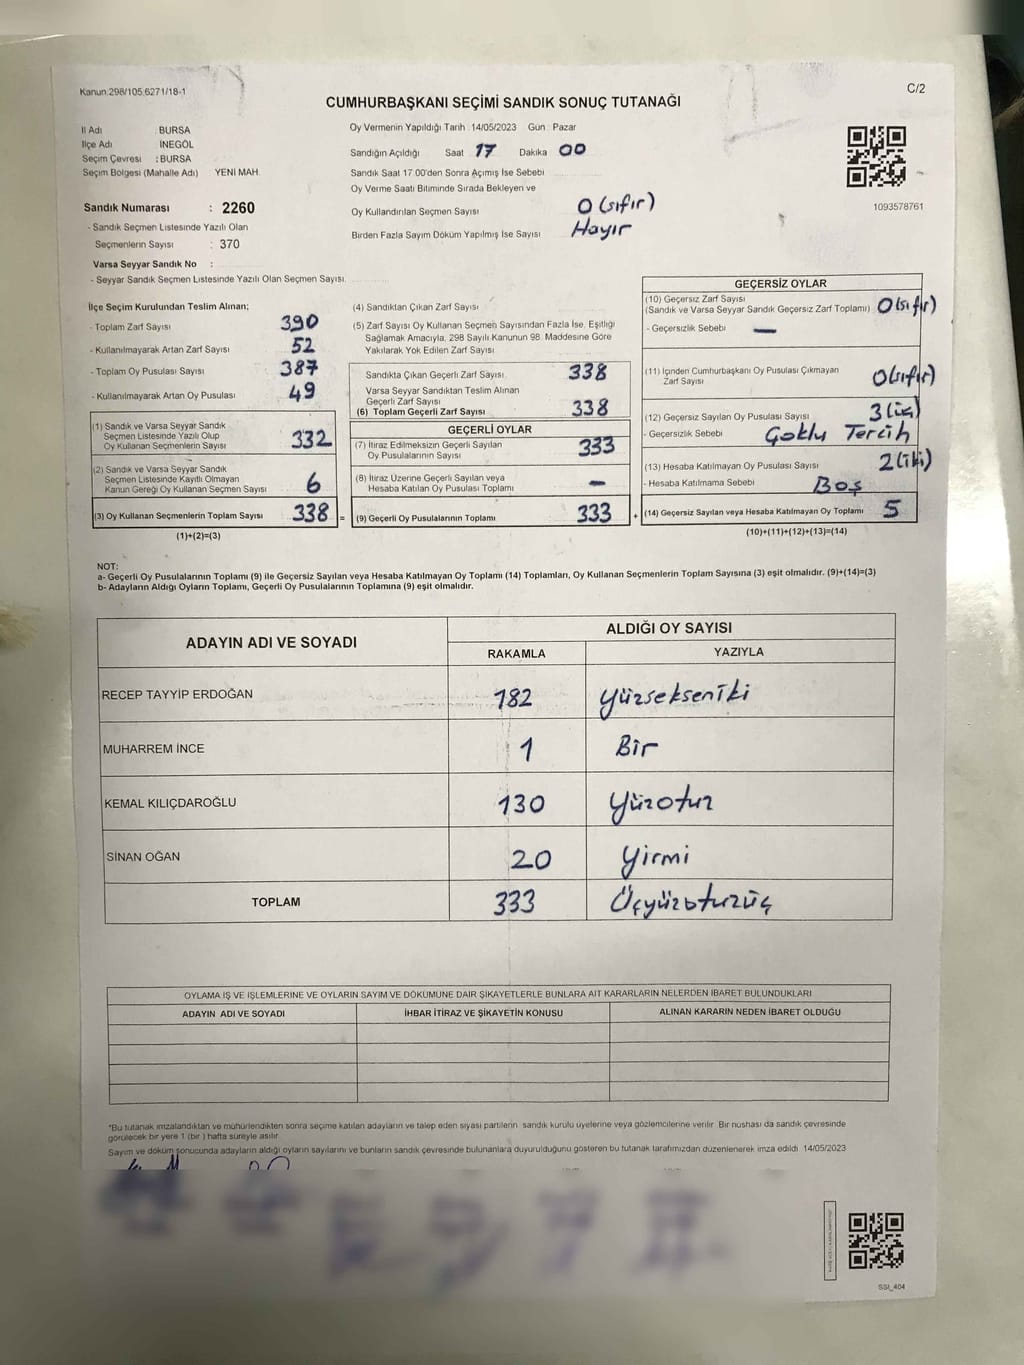 Kanun:298/105.6271/18-1
C/2
CUMHURBAŞKANI SEÇİMİ SANDIK SONUÇ TUTANAĞI
İl Adı : BURSA
İlçe Adı İNEGÖL
Seçim Çevresi : BURSA
Seçim Bölgesi (Mahalle Adı) YENİ MAH.
Sandık Numarası : 2260
- Sandık Seçmen Listesinde Yazılı Olan
Seçmenlerin Sayısı : 370
Varsa Seyyar Sandık No :
- Seyyar Sandık Seçmen Listesinde Yazılı Olan Seçmen Sayısı
Oy Vermenin Yapıldığı Tarih 14/05/2023 Gün : Pazar
Sandığın Açıldığı Saat 17 Dakika 00
Sandık Saat 17.00'den Sonra Açımış İse Sebebi
Oy Verme Saati Bitiminde Sırada Bekleyen ve
Oy Kullandırılan Seçmen Sayısı 0 (sıfır)
Birden Fazla Sayım Döküm Yapılmış İse Sayısı Hayır
1093578761
İlçe Seçim Kurulundan Teslim Alınan;
- Toplam Zarf Sayısı 390
- Kullanılmayarak Artan Zarf Sayısı 52
- Toplam Oy Pusulası Sayısı 387
- Kullanılmayarak Artan Oy Pusulası 49
(1) Sandık ve Varsa Seyyar Sandık
Seçmen Listesinde Yazılı Olup
Oy Kullanan Seçmenlerin Sayısı 332
(2) Sandık ve Varsa Seyyar Sandık
Seçmen Listesinde Kayıtlı Olmayan
Kanun Gereği Oy Kullanan Seçmen Sayısı 6
(3) Oy Kullanan Seçmenlerin Toplam Sayısı 338 =
(1)+(2)=(3)
(4) Sandıktan Çıkan Zarf Sayısı
(5) Zarf Sayısı Oy Kullanan Seçmen Sayısından Fazla İse, Eşitliği
Sağlamak Amacıyla, 298 Sayılı Kanunun 98. Maddesine Göre
Yakılarak Yok Edilen Zarf Sayısı
Sandıkta Çıkan Geçerli Zarf Sayısı 338
Varsa Seyyar Sandıktan Teslim Alınan
Geçerli Zarf Sayısı
(6) Toplam Geçerli Zarf Sayısı 338
GEÇERLİ OYLAR
(7) İtiraz Edilmeksizin Geçerli Sayılan
Oy Pusulalarının Sayısı 333
(8) İtiraz Üzerine Geçerli Sayılan veya
Hesaba Katılan Oy Pusulası Toplamı -
(9) Geçerli Oy Pusulalarının Toplamı 333 +
GEÇERSİZ OYLAR
(10) Geçersiz Zarf Sayısı
(Sandık ve Varsa Seyyar Sandık Geçersiz Zarf Toplamı) 0 (sıfır)
- Geçersizlik Sebebi -
(11) İçinden Cumhurbaşkanı Oy Pusulası Çıkmayan
Zarf Sayısı 0 (sıfır)
(12) Geçersiz Sayılan Oy Pusulası Sayısı 3 (üç)
- Geçersizlik Sebebi Çoklu Tercih
(13) Hesaba Katılmayan Oy Pusulası Sayısı 2 (iki)
- Hesaba Katılmama Sebebi Boş
(14) Geçersiz Sayılan veya Hesaba Katılmayan Oy Toplamı 5
(10)+(11)+(12)+(13)=(14)
NOT:
a- Geçerli Oy Pusulalarının Toplamı (9) ile Geçersiz Sayılan veya Hesaba Katılmayan Oy Toplamı (14) Toplamları, Oy Kullanan Seçmenlerin Toplam Sayısına (3) eşit olmalıdır. (9)+(14)=(3)
b- Adayların Aldığı Oyların Toplamı, Geçerli Oy Pusulalarının Toplamına (9) eşit olmalıdır.
ADAYIN ADI VE SOYADI
ALDIĞI OY SAYISI
RAKAMLA YAZIYLA
RECEP TAYYİP ERDOĞAN 182 Yüzsekseniki
MUHARREM İNCE 1 Bir
KEMAL KILIÇDAROĞLU 130 Yüzotuz
SİNAN OĞAN 20 Yirmi
TOPLAM 333 Üçyüzotuzüç
OYLAMA İŞ VE İŞLEMLERİNE VE OYLARIN SAYIM VE DÖKÜMÜNE DAİR ŞİKAYETLERLE BUNLARA AİT KARARLARIN NELERDEN İBARET BULUNDUKLARI
ADAYIN ADI VE SOYADI İHBAR İTİRAZ VE ŞİKAYETİN KONUSU ALINAN KARARIN NEDEN İBARET OLDUĞU
*Bu tutanak imzalandıktan ve mühürlendikten sonra seçime katılan adayların ve talep eden siyasi partilerin sandık kurulu üyelerine veya gözlemcilerine verilir. Bir nüshası da sandık çevresinde
görülecek bir yere 1 (bir) hafta süreyle asılır.
Sayım ve döküm sonucunda adayların aldığı oyların sayılarını ve bunların sandık çevresinde bulunanlara duyurulduğunu gösteren bu tutanak tarafımızdan düzenlenerek imza edildi. 14/05/2023
SSI_404